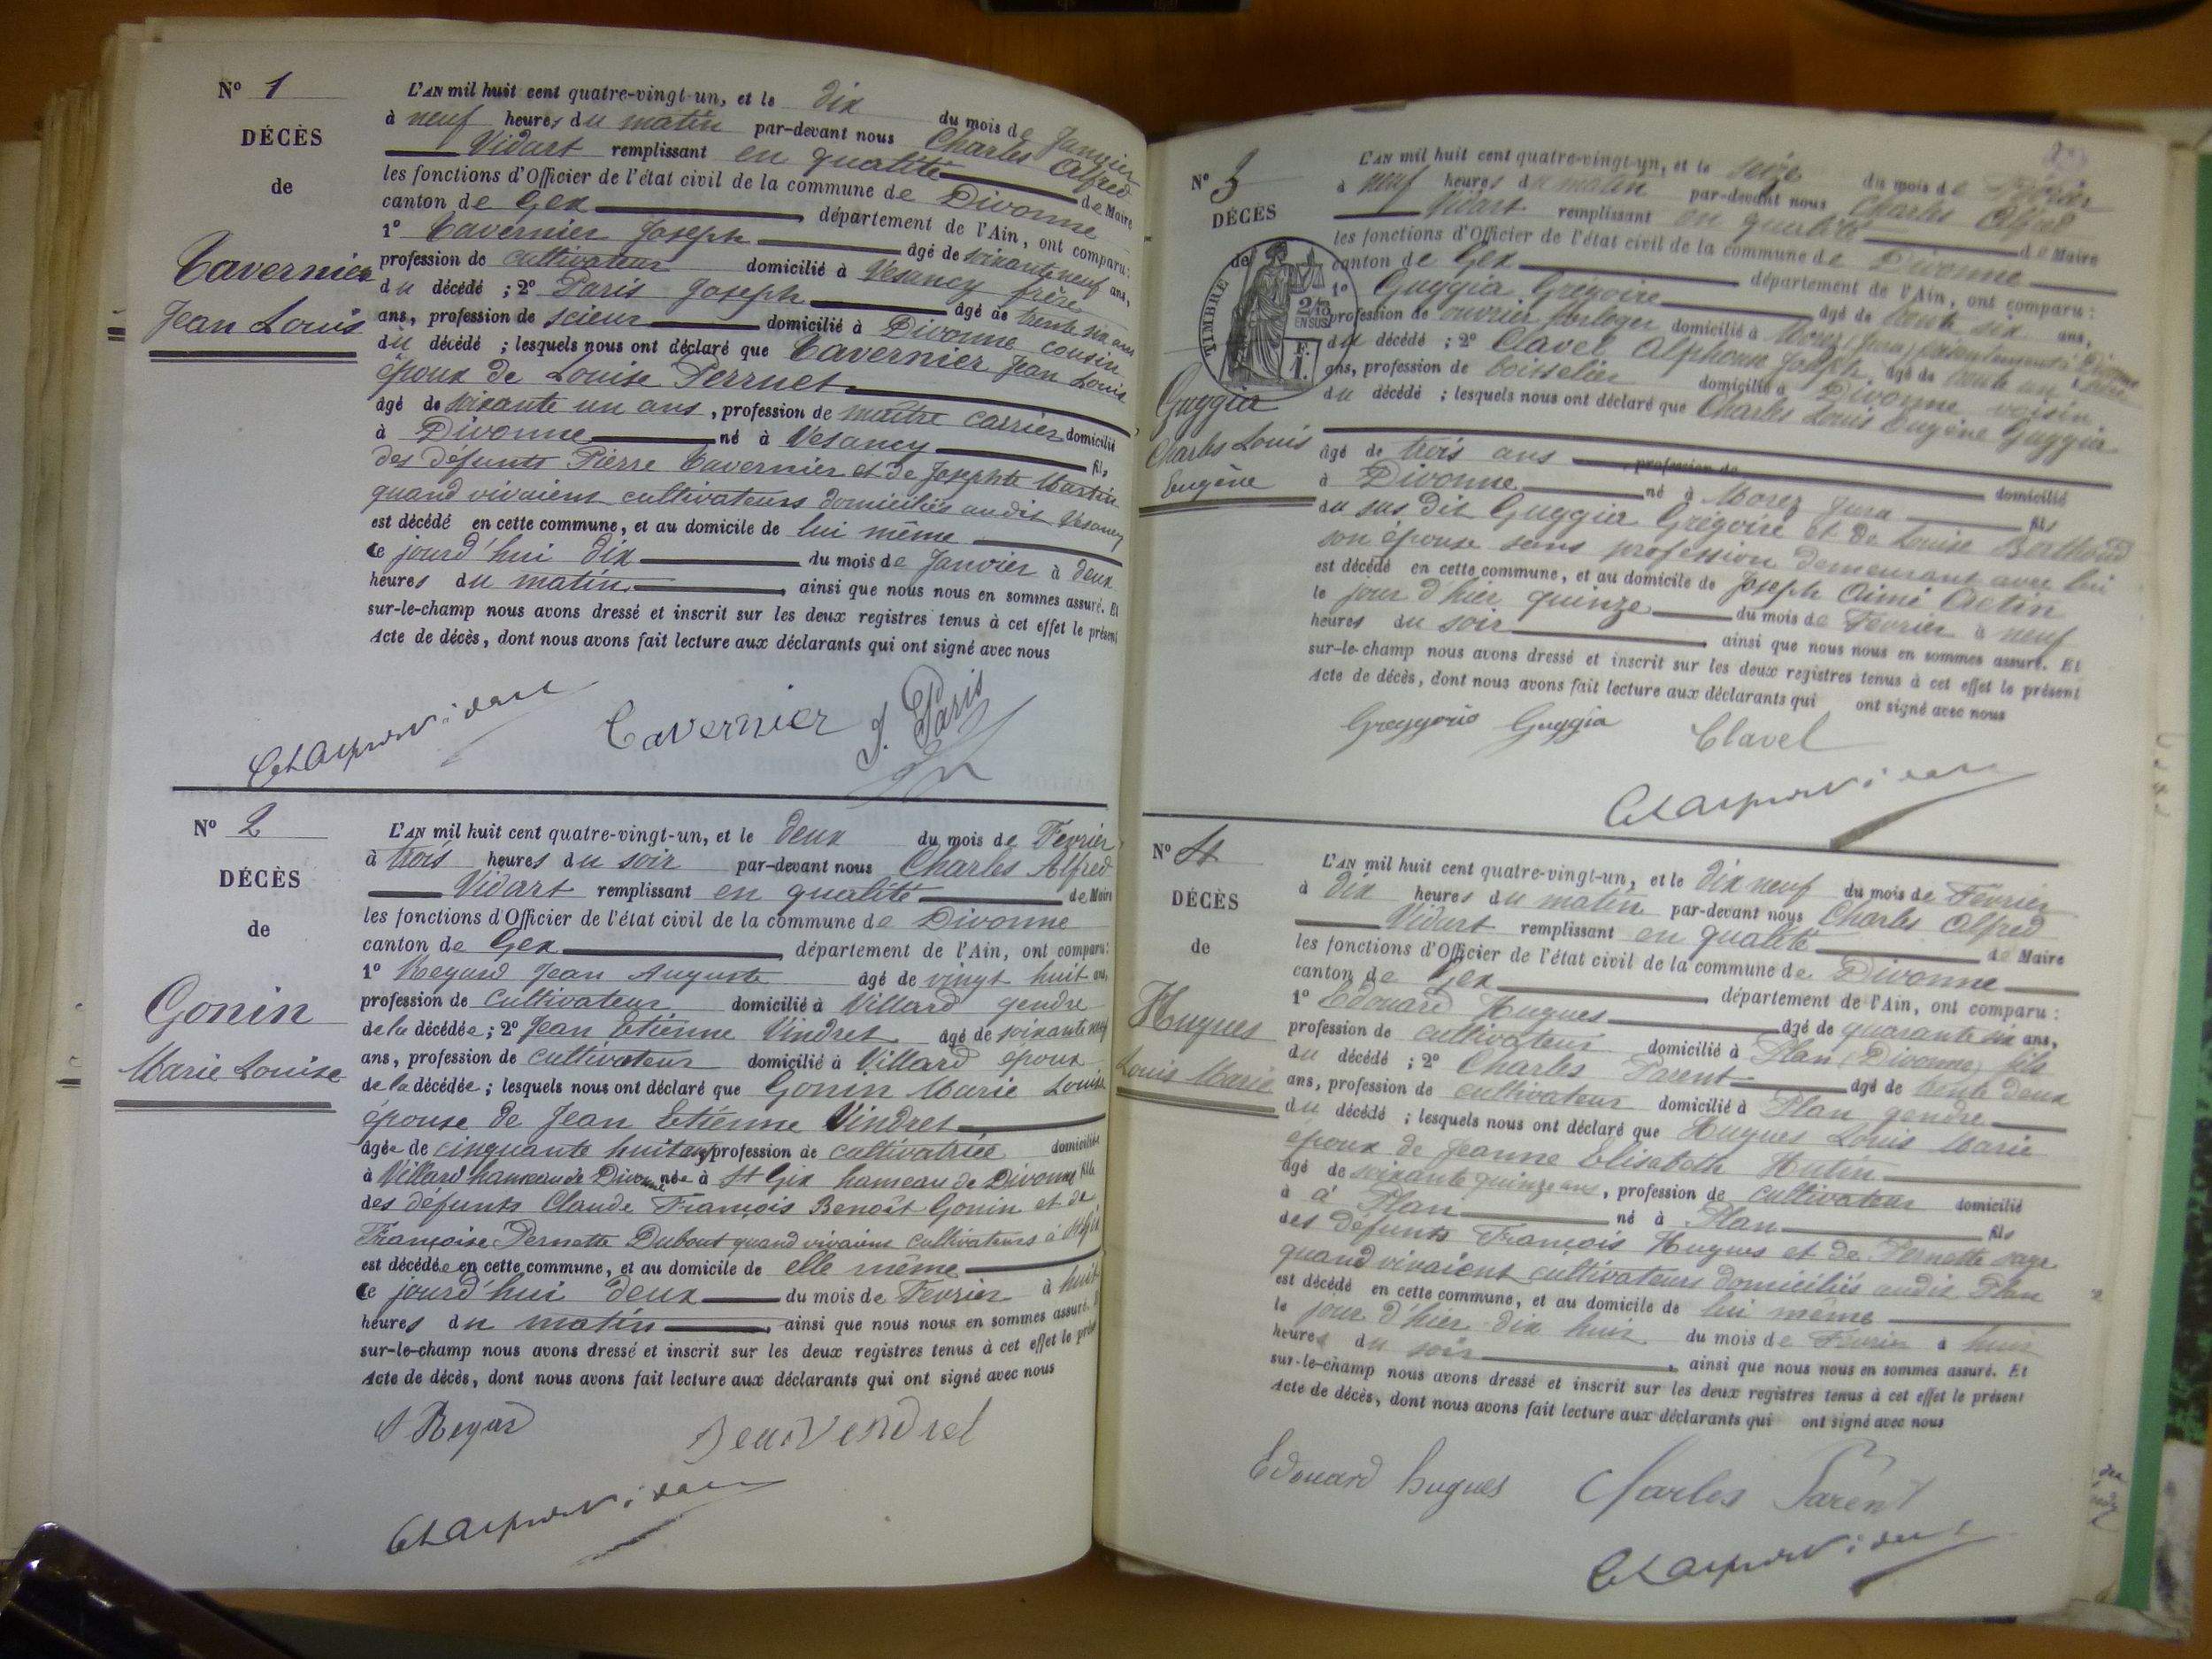 N° 1
DÉCÈS
de
Tavernier
Jean Louis
L'AN mil huit cent quatre-vingt-un, et le dix du mois de Janvier
à neuf heures du matin par-devant nous Charles Alfred
Vidart remplissant en qualité de Maire
les fonctions d'Officier de l'état civil de la commune de Divonne
canton de Gex, département de l'Ain, ont comparu:
1° Tavernier Joseph âgé de soixante neuf ans,
profession de cultivateur domicilié à Vesancy frère
du décédé ; 2° Paris Joseph âgé de trente six ans
ans, profession de scieur domicilié à Divonne cousin
du décédé ; lesquels nous ont déclaré que Tavernier Jean Louis
époux de Louise Perruet
âgé de soixante un ans, profession de maître carrier domicilié
à Divonne né à Vesancy fils
des défunts Pierre Tavernier et de Josephte Martin
quand vivaient cultivateurs domiciliés audit Vesancy
est décédé en cette commune, et au domicile de lui même
ce jourd'hui dix du mois de Janvier à deux
heures du matin, ainsi que nous nous en sommes assuré. Et
sur-le-champ nous avons dressé et inscrit sur les deux registres tenus à cet effet le présent
Acte de décès, dont nous avons fait lecture aux déclarants qui ont signé avec nous
Tavernier J. Paris
N° 2
DÉCÈS
de
Gonin
Marie Louise
L'AN mil huit cent quatre-vingt-un, et le deux du mois de Fevrier
à trois heures du soir par-devant nous Charles Alfred
Vidart remplissant en qualité de Maire
les fonctions d'Officier de l'état civil de la commune de Divonne
canton de Gex, département de l'Ain, ont comparu:
1° Regard Jean Auguste âgé de vingt huit ans,
profession de cultivateur domicilié à Villard gendre
de la décédée ; 2° Jean Etiénne Vindret âgé de soixante neuf
ans, profession de cultivateur domicilié à Villard époux
de la décédée ; lesquels nous ont déclaré que Gonin Marie Louise
épouse de Jean Etiénne Vindret
âgée de cinquante huit ans, profession de cultivatrice domiciliée
à Villard hameau de Divonne née à St Gix hameau de Divonne fille
des défunts Claude François Benoît Gonin et de
Françoise Pernette Dubout quand vivaient cultivateurs à St Gix
est décédée en cette commune, et au domicile de elle même
ce jourd'hui deux du mois de Fevrier à huit
heures du matin, ainsi que nous nous en sommes assuré. Et
sur-le-champ nous avons dressé et inscrit sur les deux registres tenus à cet effet le présent
Acte de décès, dont nous avons fait lecture aux déclarants qui ont signé avec nous
Regard Jean Vendret
N° 3
DÉCÈS
de
TIMBRE
2/10
EN SUS
F.
1.
Guggia
Charles Louis
Eugène
L'AN mil huit cent quatre-vingt-un, et le seize du mois de Février
à neuf heures du matin par-devant nous Charles Alfred
Vidart remplissant en qualité de Maire
les fonctions d'Officier de l'état civil de la commune de Divonne
canton de Gex département de l'Ain, ont comparu:
1° Guggia Grégoire âgé de trente six ans,
profession de ouvrier horloger domicilié à Morez Jura
du décédé ; 2° Clavel Alphonse Joseph âgé de trente un
ans, profession de boisselier domicilié à Divonne voisin
du décédé ; lesquels nous ont déclaré que Charles Louis Eugène Guggia
âgé de trois ans, profession de domicilié
à Divonne né à Morez Jura fils
du sus dit Guggia Grégoire et de Louise Berthoud
son épouse sans profession demeurant avec lui
est décédé en cette commune, et au domicile de Joseph Aimé Actin
le jour d'hier quinze du mois de Fevrier à neuf
heures du soir ainsi que nous nous en sommes assuré. Et
sur-le-champ nous avons dressé et inscrit sur les deux registres tenus à cet effet le présent
Acte de décès, dont nous avons fait lecture aux déclarants qui ont signé avec nous
Greggorio Guggia Clavel
N° 4
DÉCÈS
de
Hugues
Louis Marie
L'AN mil huit cent quatre-vingt-un, et le dix neuf du mois de Fevrier
à dix heures du matin par-devant nous Charles Alfred
Vidart remplissant en qualité de Maire
les fonctions d'Officier de l'état civil de la commune de Divonne
canton de Gex, département de l'Ain, ont comparu :
1° Edouard Hugues âgé de quarante six ans,
profession de cultivateur domicilié à Plan (Divonne) fils
du décédé ; 2° Charles Parent âgé de trente deux
ans, profession de cultivateur domicilié à Plan gendre
du décédé ; lesquels nous ont déclaré que Hugues Louis Marie
époux de Jeanne Elisabeth Hutin
âgé de soixante quinze ans, profession de cultivateur domicilié
à à Plan né à Plan fils
des défunts François Hugues et de Pernette
quand vivaient cultivateurs domiciliés audit Plan
est décédé en cette commune, et au domicile de lui même
le jour d'hier dix huit du mois de Fevrier à huit
heures du soir, ainsi que nous nous en sommes assuré. Et
sur-le-champ nous avons dressé et inscrit sur les deux registres tenus à cet effet le présent
Acte de décès, dont nous avons fait lecture aux déclarants qui ont signé avec nous
Edouard hugues Charles Parent